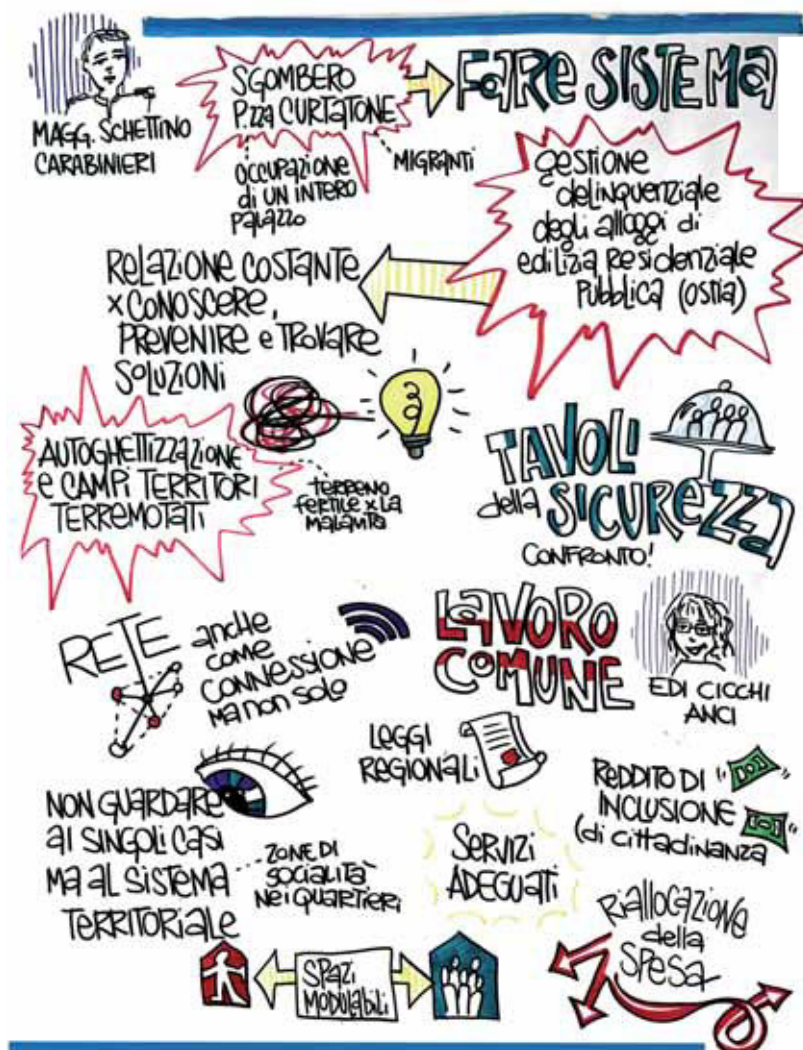 MAGG. SCHETTINO
CARABINIERI
SGOMBERO
P.ZZA CURTATONE
OCCUPAZIONE
di UN INTERO
PALAZZO
MIGRANTI
FARE SISTEMA
gestione
delinquenziale
degli alloggi di
edilizia Residenziale
Pubblica (OSTIA)
RELAZIONE COSTANTE
x CONOSCERE,
PREVENIRE e TROVARE
SOLUZIONI
AUTOGHETTIZZAZIONE
e CAMPI TERRITORI
TERREMOTATI
TERRENO
FERTILE x LA
MALAVITA
TAVOLI
della SICUREZZA
CONFRONTO!
RETE anche
come
CONNESSIONE
ma non solo
LAVORO
COMUNE
EDI CICCHI
ANCI
LEGGI
REGIONALI
REDDITO DI
INCLUSIONE
(di cittadinanza
NON GUARDARE
AI SINGOLI CASI
MA AL SISTEMA
TERRITORIALE
ZONE DI
SOCIALITÀ
NEI QUARTIERI
SERVIZI
ADEGUATI
RIALLOCAZIONE
della
SPESA
SPAZI
MODULABILI